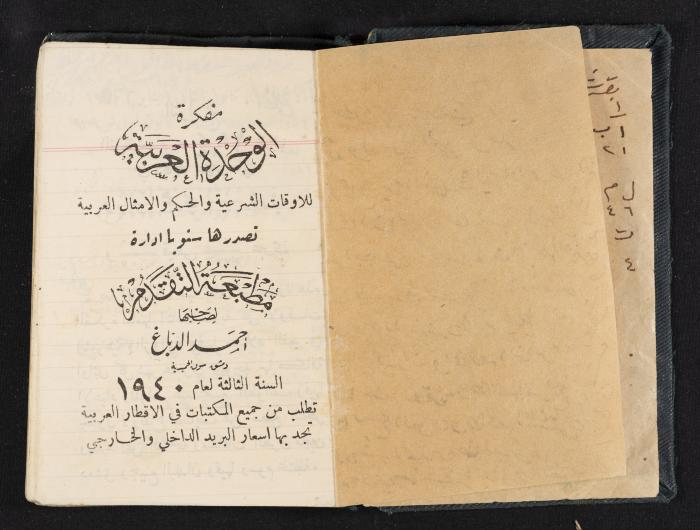 مفكرة
الوحدة العربية
للاوقات الشرعية والحكم والامثال العربية
تصدرها سنويا ادارة
مطبعة التقدم
لصاحبها
احمد الدباغ
دمشق
السنة الثالثة لعام ١٩٤٠
تطلب من جميع المكتبات في الاقطار العربية
تجد بها اسعار البريد الداخلي والخارجي